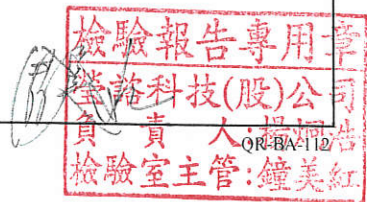 檢驗報告專用章
瑩諮科技(股)公司
負責人:楊烱浩
QR-BA-112
檢驗室主管:鐘美紅